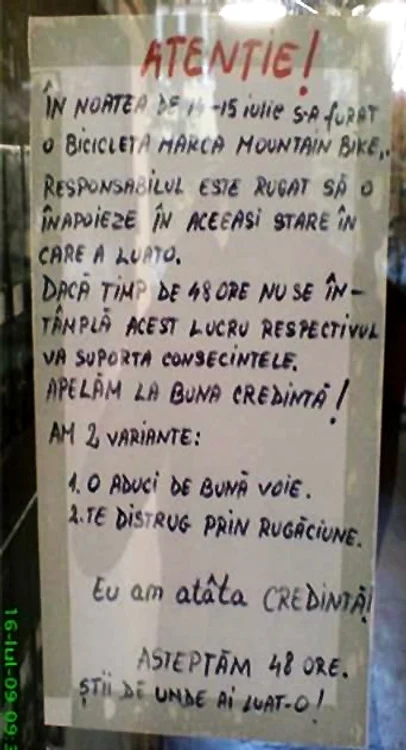 ATENTIE!
ÎN NOATEA DE 14-15 iulie S-A FURAT
O BICICLETA MARCA MOUNTAIN BIKE,.
RESPONSABILUL ESTE RUGAT SĂ O
ÎNAPOIEZE ÎN ACEEASI STARE ÎN
CARE A LUATO.
DACĂ TIMP DE 48 ORE NU SE ÎN-
TÂMPLĂ ACEST LUCRU RESPECTIVUL
VA SUPORTA CONSECINTELE.
APELĂM LA BUNA CREDINTĂ!
AM 2 VARIANTE:
1. O ADUCI DE BUNĂ VOIE.
2. TE DISTRUG PRIN RUGĂCIUNE.
Eu am atâta CREDINTĂ!
ASTEPTĂM 48 ORE.
ȘTII DE UNDE AI LUAT-O!
16-Iul-09 09:3